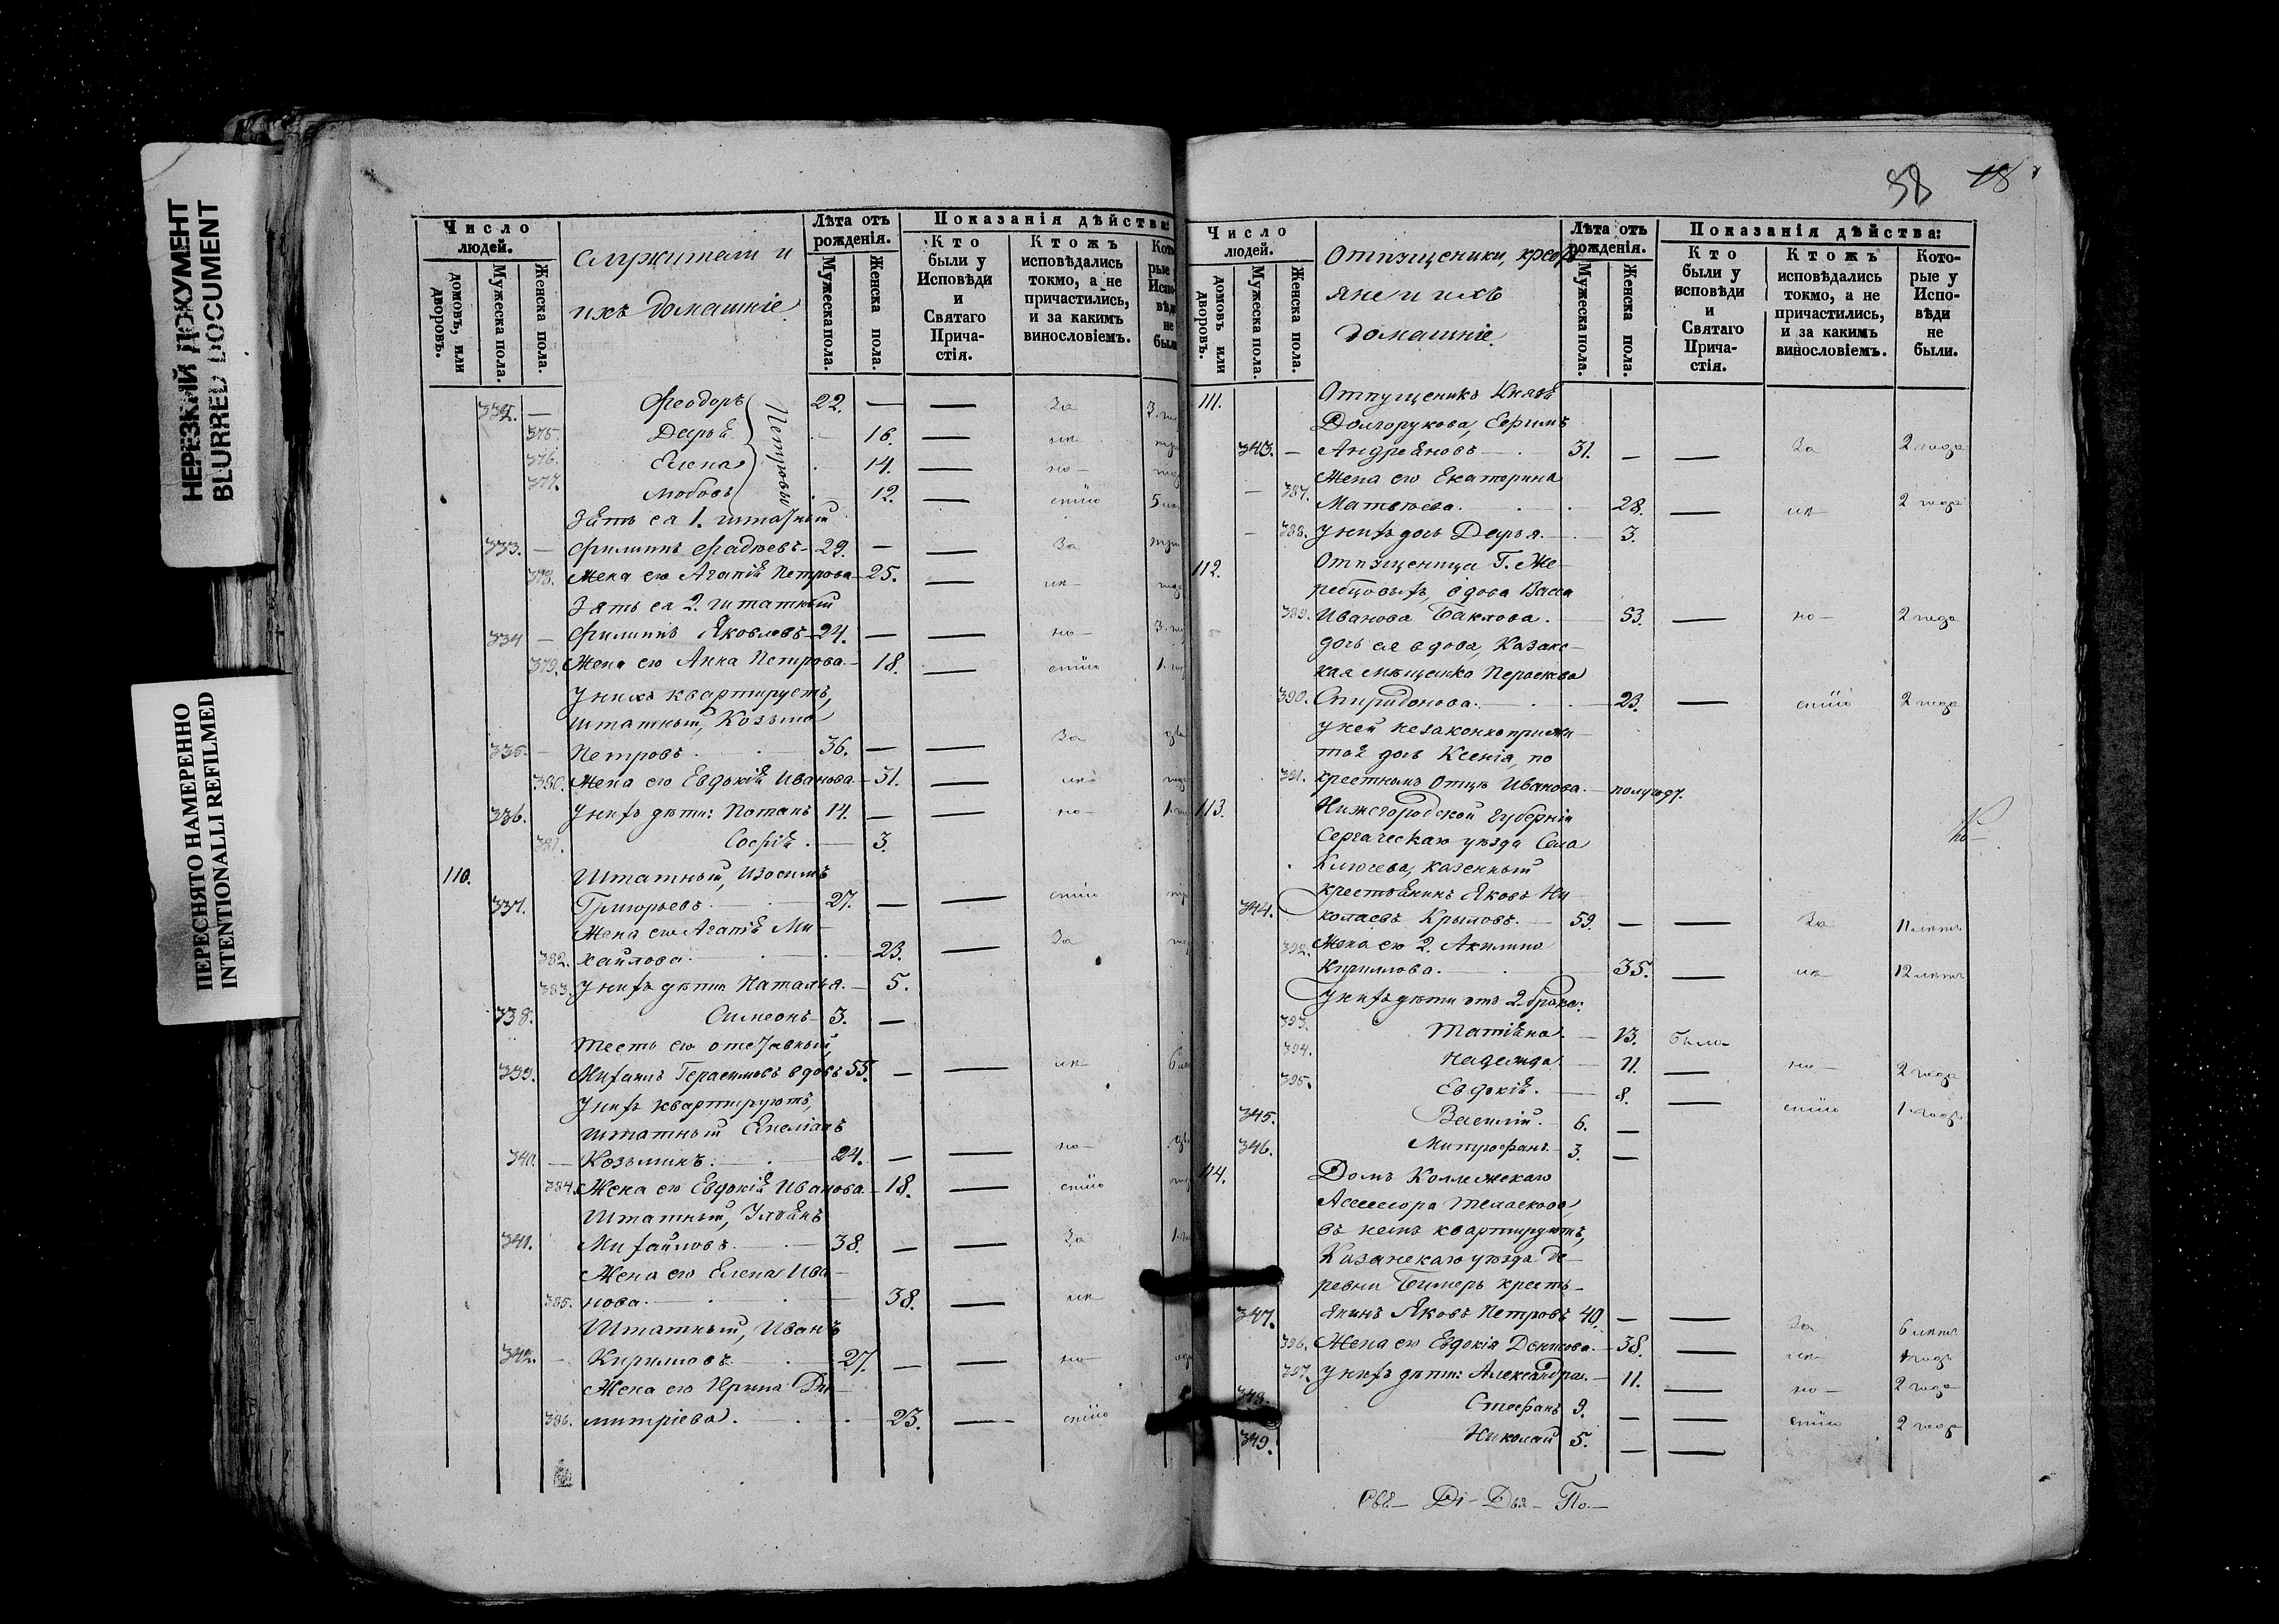 НЕРЕЗКИЙ ДОКУМЕНТ
BLURRED DOCUMENT
ПЕРЕСНЯТО НАМЕРЕННО
INTENTIONALLI REFILMED
Число
людей.
домовъ, или
дворовъ.
Мужеска пола.
Женска пола.
служители и
ихъ домашніе.
Лѣта отъ
рожденія.
Мужеска пола.
Женска пола.
Показанія дѣйства:
Кто
были у
Исповѣди
и
Святаго
Прича-
стія.
Ктожъ
исповѣдались
токмо, а не
причастились,
и за какимъ
винословіемъ.
332. — Феодоръ 22. — — За
375. Дарья 16. —
376. Елена 14. — но-
377. Любовь 12. — стію
Петровы
Зять ея 1. штатный
333. — Филиппъ Фадѣевъ 29. — — За
378. Жена его Агапія Петрова 25. —
Зять ея 2. штатный
334 — Филиппъ Яковлевъ 24. — — но-
379. Жена его Анна Петрова 18. — стію
У нихъ квартируетъ,
штатный, Козьма
335. — Петровъ 36. — — За
380. Жена его Евдокія Иванова 31. —
336. У нихъ дѣти: Потапъ 14. — — но-
381. Софія 3.
110. Штатный, Изосимъ
337. Григорьевъ 27. — — стію
Жена его Агапія Ми-
382. хайлова 23. — За
383. У нихъ дѣти Наталья 5.
338. Симеонъ 3. —
Тесть его отставный,
339. Михаилъ Герасимовъ вдовъ 55. — —
У нихъ квартируютъ,
штатный Емеліанъ
340. — Козьминъ 24. — — но-
384. Жена его Евдокія Иванова 18. — стію
Штатный, Ульянъ
341. Михайловъ 38. — — За
Жена его Елена Ива-
385. нова 38. —
Штатный, Иванъ
342. — Кириловъ 27. — — но-
Жена его Ирина Ди-
386. митріева 23. — стію
58 18
Число
людей.
домовъ или
дворовъ.
Мужеска пола.
Женска пола.
Отпущеники, крестъ
яне и ихъ
домашніе.
Лѣта отъ
рожденія.
Мужеска пола.
Женска пола.
Показанія дѣйства:
Кто
были у
исповѣди
и
Святаго
Прича-
стія.
Ктожъ
исповѣдались
токмо, а не
причастились,
и за какимъ
винословіемъ.
Кото-
рые у
Испо-
вѣди
не
были.
111. Отпущеникъ Князя
Долгорукова, Ефимъ
343. — Андреяновъ 31. — — За 2 года
Жена его Екатерина
387. Матвѣева 28. — 2 года
388. У нихъ дочь Дарья 3.
112. Отпущеница Г. Же-
ребцовыхъ, вдова Васса
389. Иванова Баклова 53. — но- 2 года
дочь ея вдова, Казанс-
кая мѣщанка Пераскева
390. Спиридонова 23. — стію 2 года
у ней незаконноприжи-
тая дочь Ксенія, по
391. крестномъ отцѣ Иванова полугоду.
113. Нижегородской губерніи
Сергачскаго уѣзда Села
Ключева, казенный
крестьянинъ Яковъ Ни-
344. колаевъ Крыловъ 59. — — За 11 лѣтъ
392. Жена его 2. Акилина
Кирилова 35. — 12 лѣтъ
У нихъ дѣти отъ 2 брака:
393. Татіяна 13. была
394. Надежда 11. — но- 2 года
395. Евдокія 8. — стію 1 годъ
345. Василій 6. —
346. Митрофанъ 3. —
114. Домъ Коллежскаго
Ассессора
въ немъ квартируютъ,
Казанскаго уѣзда де-
ревни Бимеръ кресть-
347. янинъ Яковъ Петровъ 40. — — За 6 лѣтъ
396. Жена его Евдокія Денисова 38. — 1 годъ
397. У нихъ дѣти: Александра 11. — но- 2 года
348. Стефанъ 9. — — стію 2 года
349. Николай 5. — —
Свя- Ді- Дья- По-